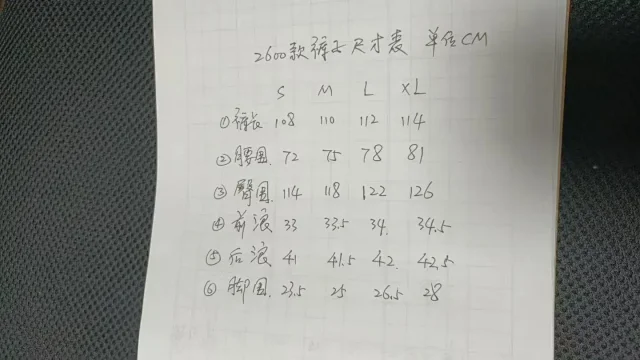 2600款裤子尺寸表 单位CM
S M L XL
①裤长 108 110 112 114
②腰围. 72 75 78 81
③臀围. 114 118 122 126
④前浪 33 33.5 34. 34.5
⑤后浪 41 41.5 42. 42.5
⑥脚围. 23.5 25 26.5 28